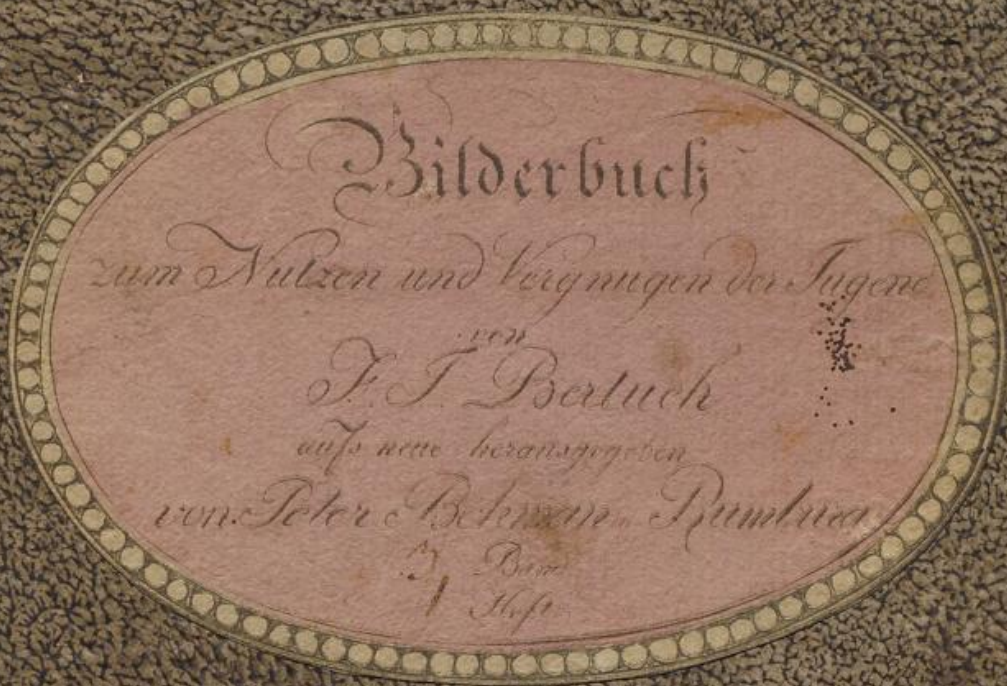 Bilderbuch
zum Nutzen und Vergnugen der Jugend
von
F. J. Bertuch
aufs neue herausgegeben
von Peter in
3 Band
1 Heft